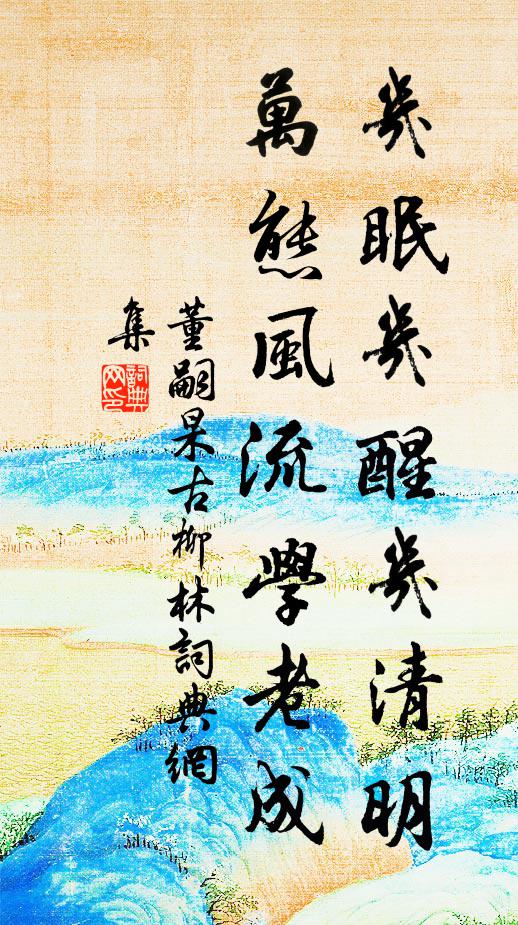 幾眠幾醒幾清明
萬態風流學老成
董嗣杲古柳林詞典網
集
詞典網印